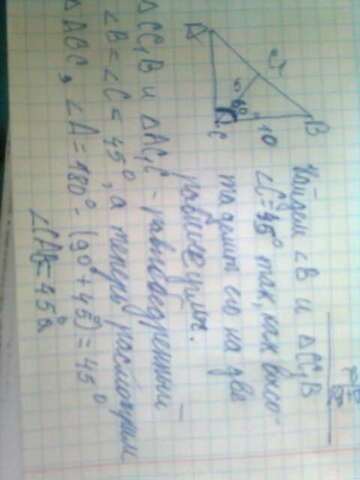 A
C₁
5
60°
C
10
B
Найдем ∠B и △CC₁B
∠C = 45° так, как высо-
та делит его на две
равные углы.
△CC₁B и △AC₁C - равнобедренный -
∠B = ∠C = 45°, а теперь рассмотрим
△ABC, ∠A = 180° - (90° + 45°) = 45°
∠CAB = 45°